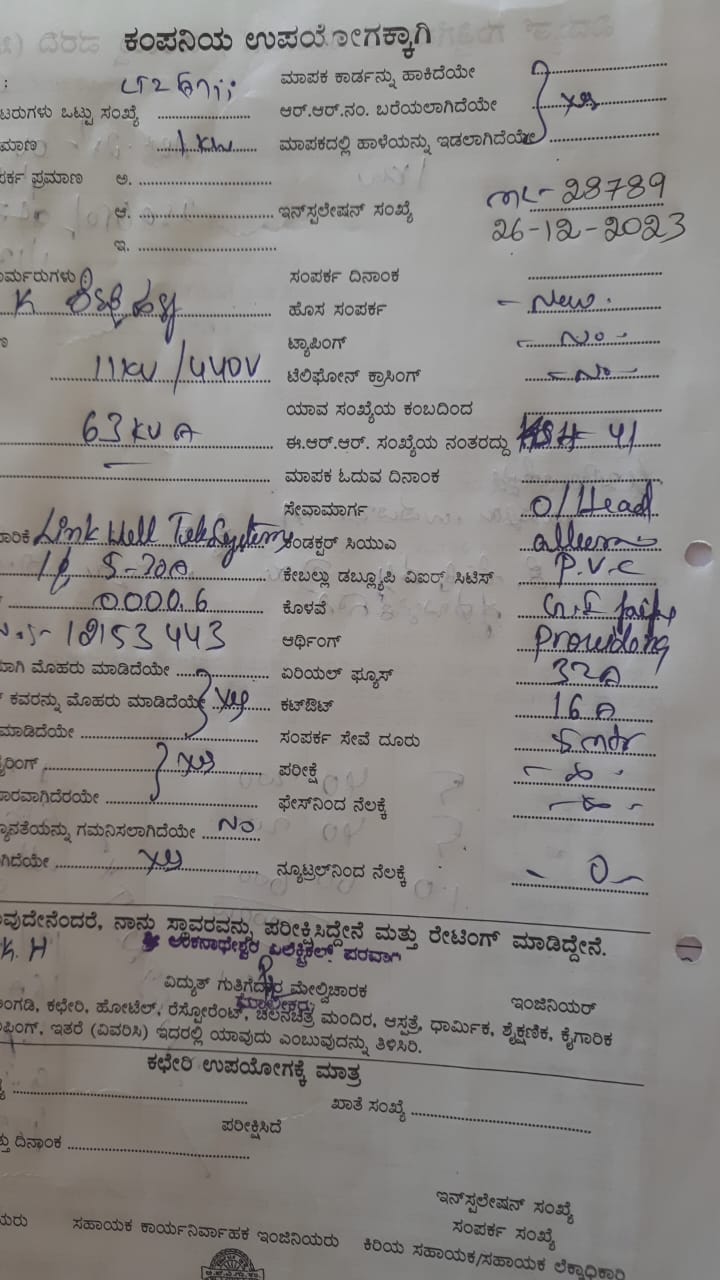 ಕಂಪನಿಯ ಉಪಯೋಗಕ್ಕಾಗಿ
: LT2 ಮಾಪಕ ಕಾರ್ಡನ್ನು ಹಾಕಿದೆಯೇ
ಟರುಗಳು ಒಟ್ಟು ಸಂಖ್ಯೆ ಆರ್.ಆರ್.ನಂ. ಬರೆಯಲಾಗಿದೆಯೇ yes
ಮಾಣ 1 KW ಮಾಪಕದಲ್ಲಿ ಹಾಳೆಯನ್ನು ಇಡಲಾಗಿದೆಯೇ
ರ್ಕ ಪ್ರಮಾಣ ಅ.
ಆ. ಇನ್‌ಸ್ಟಲೇಷನ್ ಸಂಖ್ಯೆ 28789
ಇ. 26-12-2023
ಾರ್ಮರುಗಳು ಸಂಪರ್ಕ ದಿನಾಂಕ
K ಹೊಸ ಸಂಪರ್ಕ - New.
ಟ್ಯಾಪಿಂಗ್ - No -
11KV / 440V ಟೆಲಿಫೋನ್ ಕ್ರಾಸಿಂಗ್ - No -
ಯಾವ ಸಂಖ್ಯೆಯ ಕಂಬದಿಂದ
63 KVA ಈ.ಆರ್.ಆರ್. ಸಂಖ್ಯೆಯ ನಂತರದ್ದು 41
ಮಾಪಕ ಓದುವ ದಿನಾಂಕ
ಸೇವಾಮಾರ್ಗ O/Head
ಾರಿಕೆ Link Well Tele Systems ಕಂಡಕ್ಟರ್ ಸಿಯುಎ
5-30A ಕೇಬಲ್ಲು ಡಬ್ಲ್ಯೂಪಿ ವಿಐರ್ ಸಿಟಿಸ್ P.V.C
0000.6 ಕೊಳವೆ G.I
18153443 ಆರ್ಥಿಂಗ್ Providing
ಾಗಿ ಮೊಹರು ಮಾಡಿದೆಯೇ ಏರಿಯಲ್ ಫ್ಯೂಸ್ 32A
ಕವರನ್ನು ಮೊಹರು ಮಾಡಿದೆಯೇ yes ಕಟ್‌ಔಟ್ 16 A
ಮಾಡಿದೆಯೇ ಸಂಪರ್ಕ ಸೇವೆ ದೂರು 5 mtr
ರಿಂಗ್ yes ಪರೀಕ್ಷೆ
ಾರವಾಗಿದೆರಯೇ ಫೇಸ್‌ನಿಂದ ನೆಲಕ್ಕೆ
ಾನತೆಯನ್ನು ಗಮನಿಸಲಾಗಿದೆಯೇ No
ಗಿದೆಯೇ yes ನ್ಯೂಟ್ರಲ್‌ನಿಂದ ನೆಲಕ್ಕೆ - 0 -
ಾವುದೇನೆಂದರೆ, ನಾನು ಸ್ಥಾವರವನ್ನು ಪರೀಕ್ಷಿಸಿದ್ದೇನೆ ಮತ್ತು ರೇಟಿಂಗ್ ಮಾಡಿದ್ದೇನೆ.
K. H ಎಲೆಕ್ಟ್ರಿಕಲ್ಸ್ ಪರವಾಗಿ
ವಿದ್ಯುತ್ ಗುತ್ತಿಗೆದಾರ ಮೇಲ್ವಿಚಾರಕ ಇಂಜಿನಿಯರ್
ಮಾಲೀಕರು
ಂಗಡಿ, ಕಛೇರಿ, ಹೋಟೆಲ್, ರೆಸ್ಟೋರೆಂಟ್, ಚಲನಚಿತ್ರ ಮಂದಿರ, ಆಸ್ಪತ್ರೆ, ಧಾರ್ಮಿಕ, ಶೈಕ್ಷಣಿಕ, ಕೈಗಾರಿಕ
ಪಿಂಗ್, ಇತರೆ (ವಿವರಿಸಿ) ಇದರಲ್ಲಿ ಯಾವುದು ಎಂಬುವುದನ್ನು ತಿಳಿಸಿರಿ.
ಕಛೇರಿ ಉಪಯೋಗಕ್ಕೆ ಮಾತ್ರ
ಖಾತೆ ಸಂಖ್ಯೆ
ಪರೀಕ್ಷಿಸಿದೆ
ತು ದಿನಾಂಕ
ಇನ್‌ಸ್ಟಲೇಷನ್ ಸಂಖ್ಯೆ
ಸಂಪರ್ಕ ಸಂಖ್ಯೆ
ಯರು ಸಹಾಯಕ ಕಾರ್ಯನಿರ್ವಾಹಕ ಇಂಜಿನಿಯರು ಕಿರಿಯ ಸಹಾಯಕ/ಸಹಾಯಕ ಲೆಕ್ಕಾಧಿಕಾರಿ